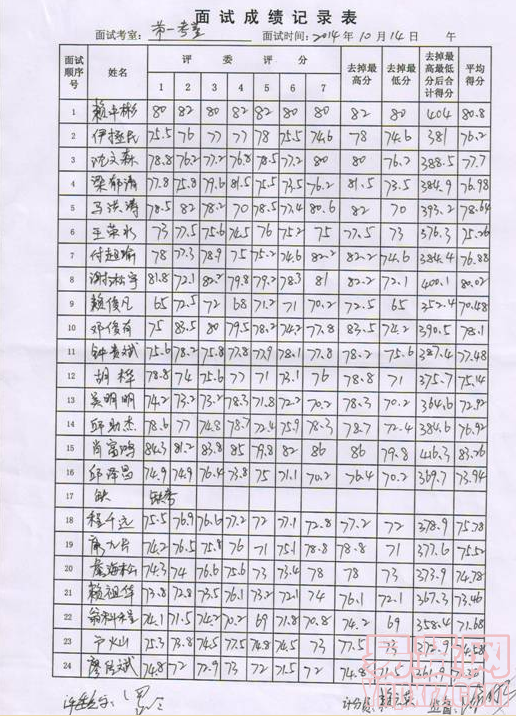 面试成绩记录表
面试考室：第一考室 面试时间：2014年10月14日 午
面试顺序号 姓名 评委评分 去掉最高分 去掉最低分 去掉最高最低分后合计得分 平均得分
1 2 3 4 5 6 7
1 赖中彬 80 82 80 82 80 80 82 80 404 80.8
2 75.5 76 77 77 78 75.5 74.6 78 74.6 381 76.2
3 沈文森 78.8 76.2 77.2 76.8 78.5 77.2 80 80 76.2 388.5 77.7
4 梁郁清 77.8 75.8 79.6 81.5 75.5 73.5 76.2 81.5 73.5 384.9 76.98
5 马洪涛 78.5 82 78.2 70 78.5 77.4 80.6 82 70 393.2 78.64
6 王荣水 73 77.5 75.6 74.5 76 75.2 75 77.5 73 376.3 75.26
7 78 77.3 78.9 75 75.2 74.6 82.2 82.2 74.6 384.4 76.88
8 谢松宇 81.8 72.1 82.2 79.8 79.2 78.3 81 82.2 72.1 400.1 80.02
9 赖俊凡 65 72.5 72 68 71.2 71 70.2 72.5 65 352.4 70.48
10 邓俊奇 75 83.5 80 79.5 78.2 74.2 77.8 83.5 74.2 390.5 78.1
11 钟贵斌 75.6 78.2 75.8 77.8 77.9 78.1 77.8 78.2 75.6 387.4 77.48
12 胡桦 78.8 74 75.6 77 71 73.1 76 78.8 71 375.7 75.14
13 吴明明 74.2 73.2 73.2 78.3 71.8 72.2 70.2 78.3 70.2 364.6 72.92
14 邱勋杰 78.6 77 74.8 78.7 72.4 75.9 78.3 78.7 72.4 384.6 76.92
15 肖富鸿 84.3 81.2 83.8 85 79.8 82 86 86 79.8 416.3 83.26
16 邱泽昌 74.9 74.9 76.4 73.8 75 71.1 70.2 76.4 70.2 369.7 73.94
17 缺 缺考
18 程千远 75.5 76.9 76.6 77.2 72 77.1 72.8 77.2 72 378.9 75.78
19 74.2 76.5 75.8 76 71 75.1 78.8 78.8 71 377.6 75.52
20 74.3 74 76.6 75.6 73 73.4 78 78 73 373.9 74.78
21 赖祖华 73.8 72.8 73.5 76.1 73.2 72.1 74 76.1 72.1 367.3 73.46
22 74.1 71.5 74.2 70.2 69 71.8 70.8 74.2 69 358.4 71.68
23 卢火山 75.3 73.8 74.5 77.5 74.8 74.5 73 77.5 73 372.9
24 74.8 72 72.9 73 72 71.5 72 74.8
计分员: 监督: